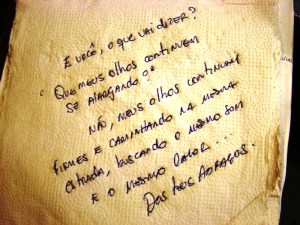 E você, o que vai dizer?
" Que meus olhos continuem
se alargando?"
Não, meus olhos continuam
firmes e caminhando na mesma
estrada, buscando o mesmo som
e o mesmo calor...
Dos teus abraços.